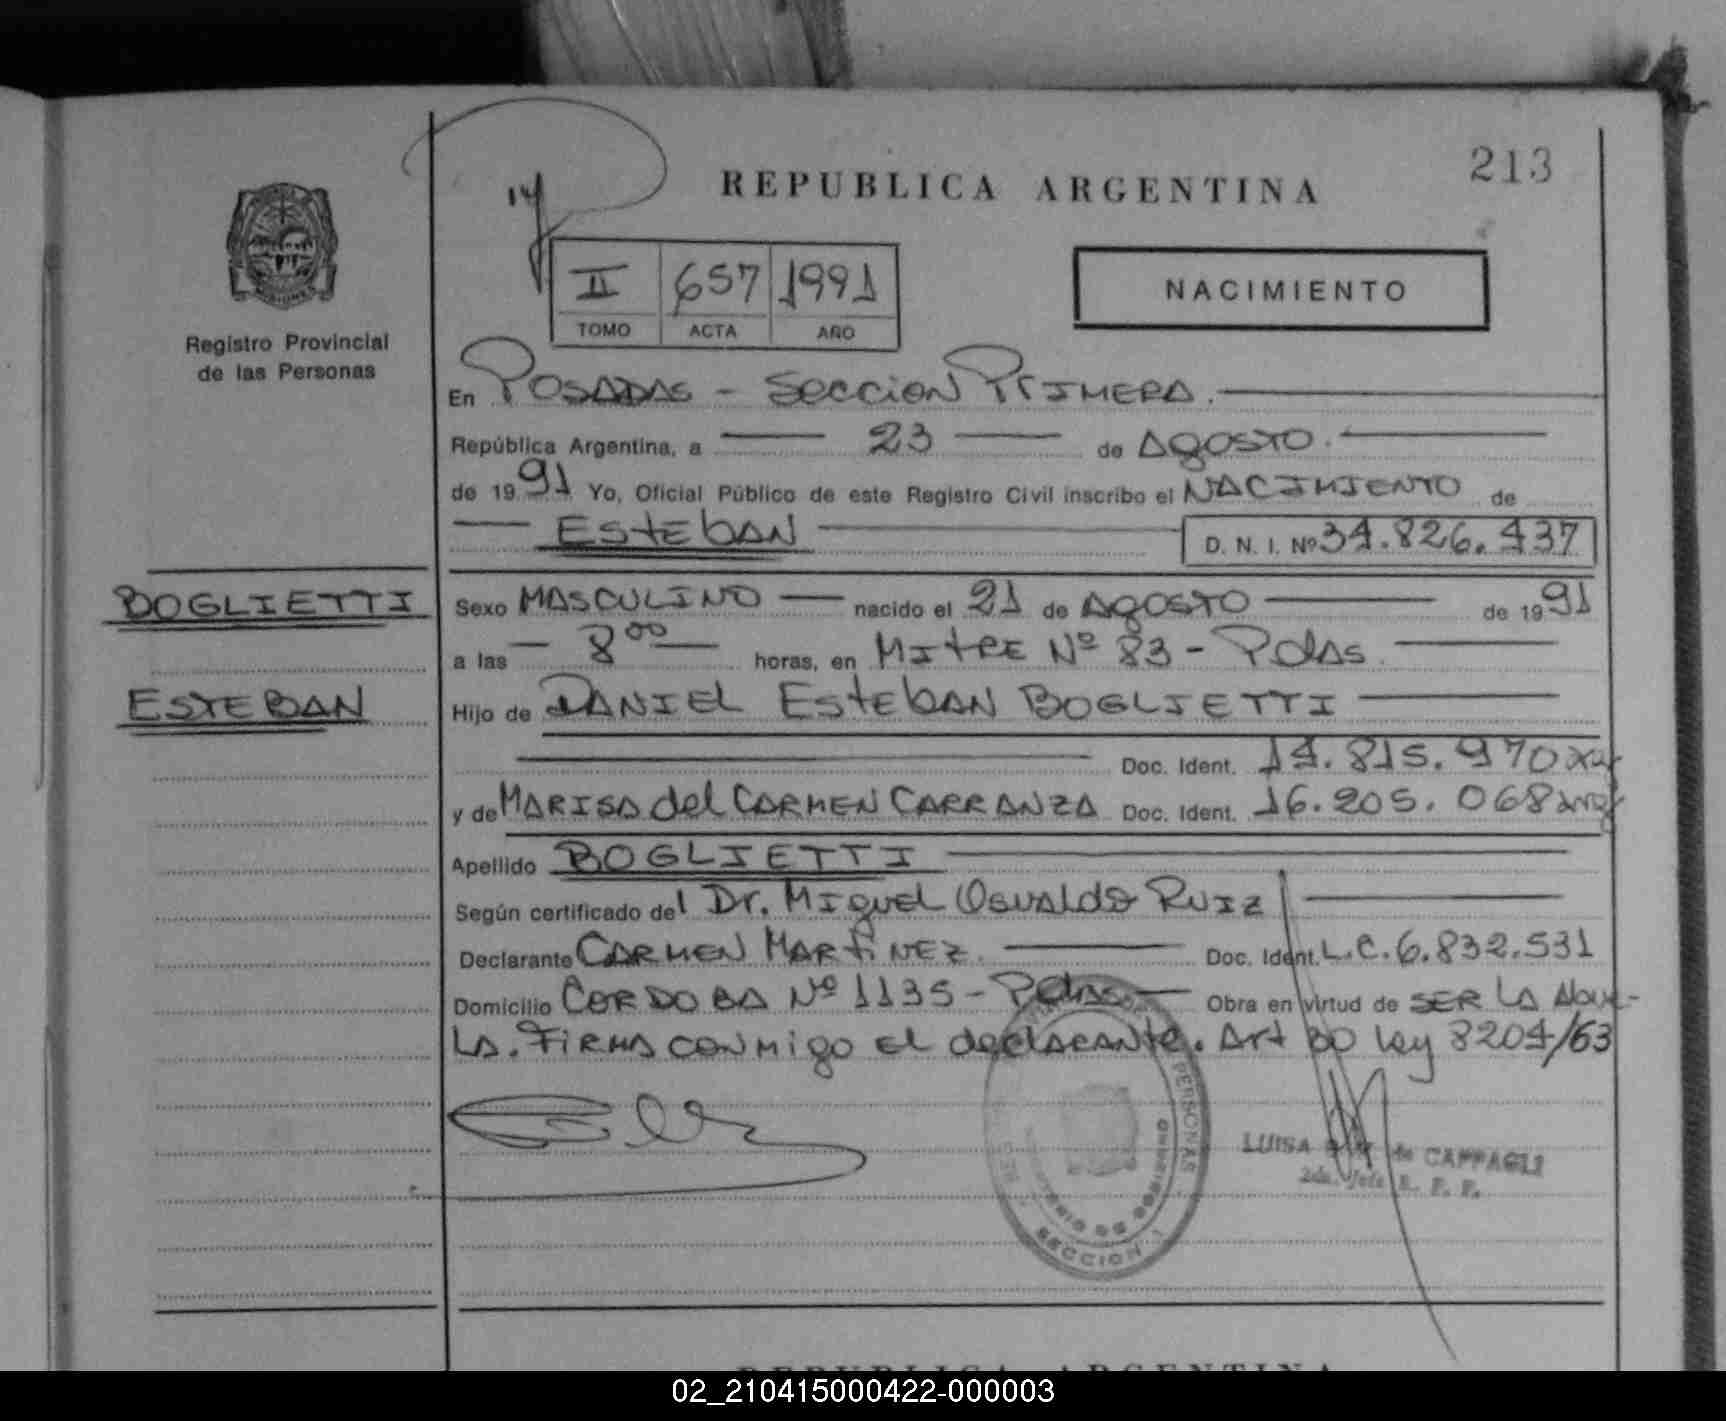 213
REPUBLICA ARGENTINA
II 657 1991
TOMO ACTA AÑO
NACIMIENTO
MISIONES
Registro Provincial
de las Personas
En POSADAS - SecciON PrIMERA.
República Argentina, a 23 de AgOSTO.
de 1991 Yo, Oficial Público de este Registro Civil inscribo el NACIMIENTO de
EStebAN D. N. I. Nº 34.826.437
BOGLIETTI
ESTEBAN
Sexo MASCULINO nacido el 21 de AgOSTO de 1991
a las 8 00 horas, en MItRE Nº 83 - Pdas.
Hijo de DANIEL EStebAN BOGLIETTI
Doc. Ident. 14.815.970
y de MARISA del CARMEN CARRANZA Doc. Ident. 16.205.068
Apellido BOGLIETTI
Según certificado del Dr. MIguel OsvALdo RuIz
Declarante CARMEN MARtiNEz. Doc. Ident. L.C. 6.832.531
Domicilio CORDOBA Nº 1135 - Pdas Obra en virtud de SER LA Abue-
LA. FiRMA CONMigo El declARANte. Art 30 Ley 8204/63
PERSONAS
MINISTERIO DE GOBIERNO
SECCION 1
LUISA de CAPPAGLI
2da. Jefe R. P. P.
REPUBLICA ARGENTINA
02_210415000422-000003